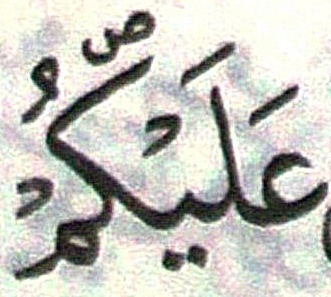 عَلَيْكُمْ ۖ ص